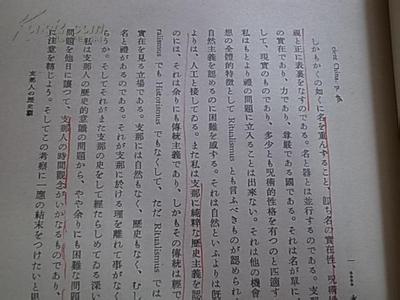 cent China, p. 
しかもかくの如くに名を重んずること、卽ち名の實在性、呪術
視と正に表裏をなすのである。名と器とは並行するのである。支
の實在であり、力であり、尊嚴である國である。それは名が單に
して、現實のものであり、多少とも呪術的性格を有つのと匹適す
私はもとより禮の問題に立入ることは出來ない。それは他の機會
想の全體的特徵として Ritualismus とも言ふべきものが認められ
自然を認めるのに困難を感する。それは自然といふよりは
よりは、人工と接してゐる。また私は支那に純粹な歷史主義を認
のには、それは餘りにも傳統主義であり、しかもその傳統は經で
ralismus でも Historismus でもなくして、ただ Ritualismus では
實在を見る立場である。支那には自然もなく、歷史もなく、むし
名と禮があるのである。それが支那に於ける理を離れて事がなく
らうか。そしてそれがまた支那の史をして經たらしめてゐる深い
私は支那人の歷史的意識の問題から、やや餘りにも困難な問題
問題を他日に讓つて、支那人の時間觀念がいかなるものであり、
に注意を轉じよう。そしてこの考察に一應の結末をつけたいと思
支那人の歷史觀